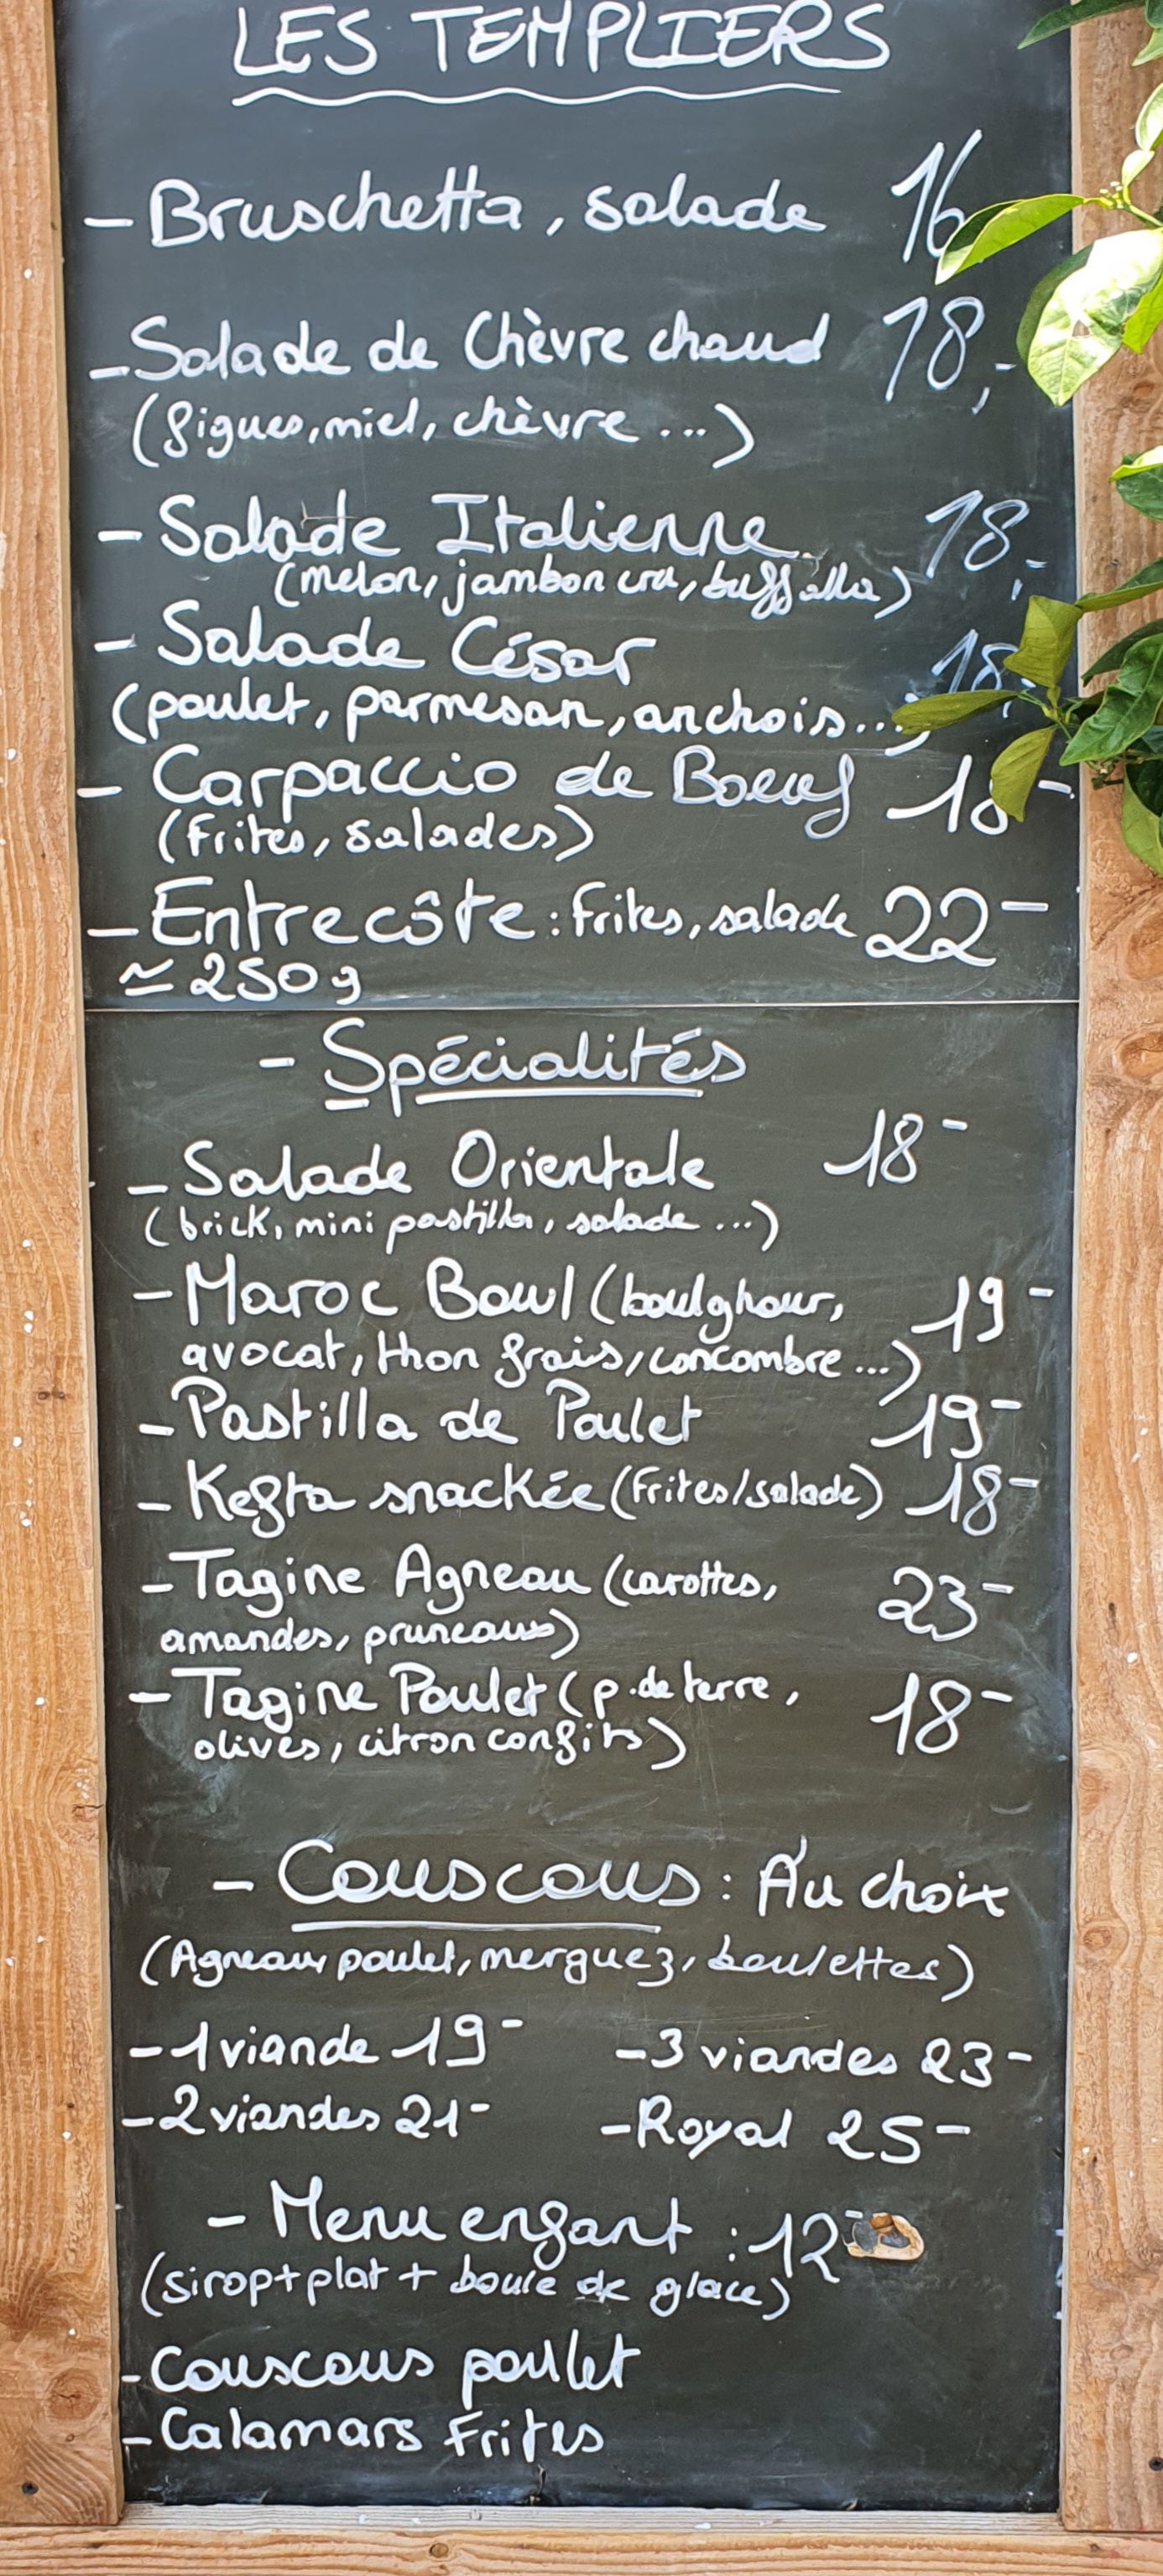 LES TEMPLIERS
- Bruschetta, salade 16
- Salade de Chèvre chaud 18,-
(figues, miel, chèvre ...)
- Salade Italienne 18,-
(melon, jambon cru, buffalla)
- Salade César 18,-
(poulet, parmesan, anchois...)
- Carpaccio de Boeuf 18-
(frites, salades)
- Entrecôte : frites, salade 22-
≃ 250 g
- Spécialités
- Salade Orientale 18-
(brick, mini pastilla, salade ...)
- Maroc Bowl (boulghour, 19-
avocat, thon frais, concombre ...)
- Pastilla de Poulet 19-
- Kefta snackée (Frites/salade) 18-
- Tagine Agneau (carottes, 23-
amandes, pruneaux)
- Tagine Poulet (p. de terre, 18-
olives, citron confits)
- Couscous : Au choix
(Agneau poulet, merguez, boulettes)
- 1 viande 19- - 3 viandes 23-
- 2 viandes 21- - Royal 25-
- Menu enfant : 12-
(sirop + plat + boule de glace)
- Couscous poulet
- Calamars Frites